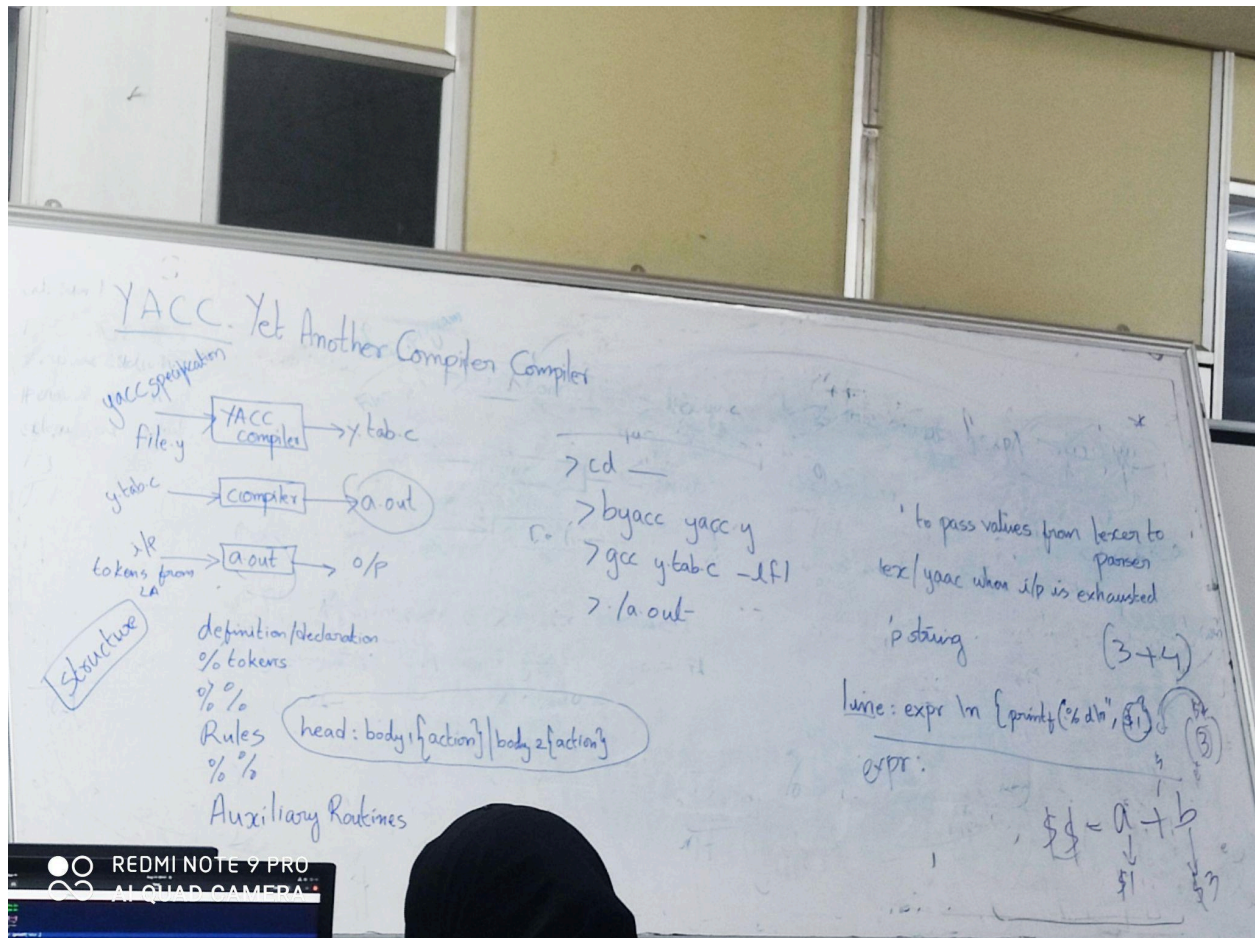 YACC. Yet Another Compiler Compiler
yacc specification
file.y
YACC
compiler
y.tab.c
y.tab.c
Compiler
a.out
i/p
tokens from
LA
a.out
o/p
Structure
definition/declaration
% tokens
%%
Rules
head : body1{action} | body2{action}
%%
Auxiliary Routines
> cd __
> byacc yacc.y
> gcc y.tab.c -lfl
> ./a.out
to pass values from lexer to
parser
lex/yaac when i/p is exhausted
string
(3+4)
line : expr \n {printf("%d\n", $1)}
3
expr :
$$ = a + b
$1
$3
REDMI NOTE 9 PRO
AI QUAD CAMERA